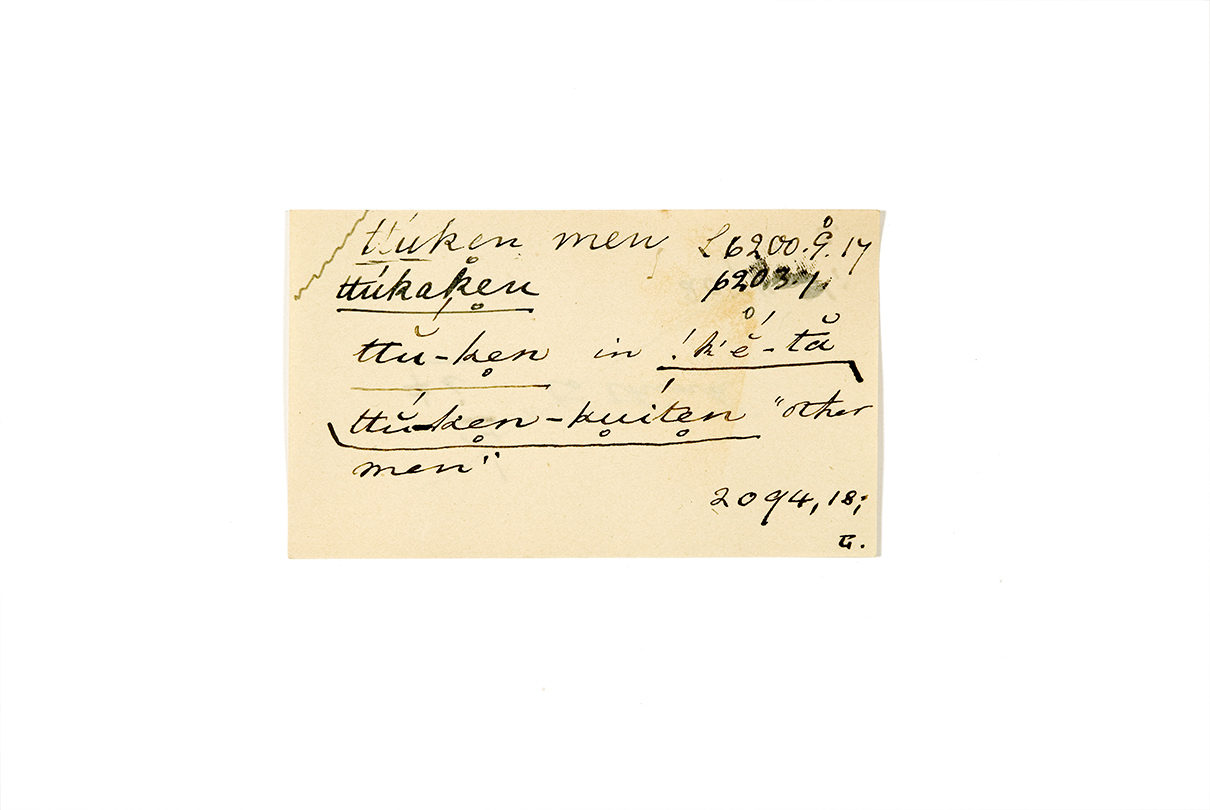 ttúken̥ men, L 6200. G̊. 17
ttúkak̥en 6203. 1.
ttŭ-k̥en in !k'é̊-tă
ttŭ́-k̥en-k̥uít̥en "other
men"
2094, 18;
G.